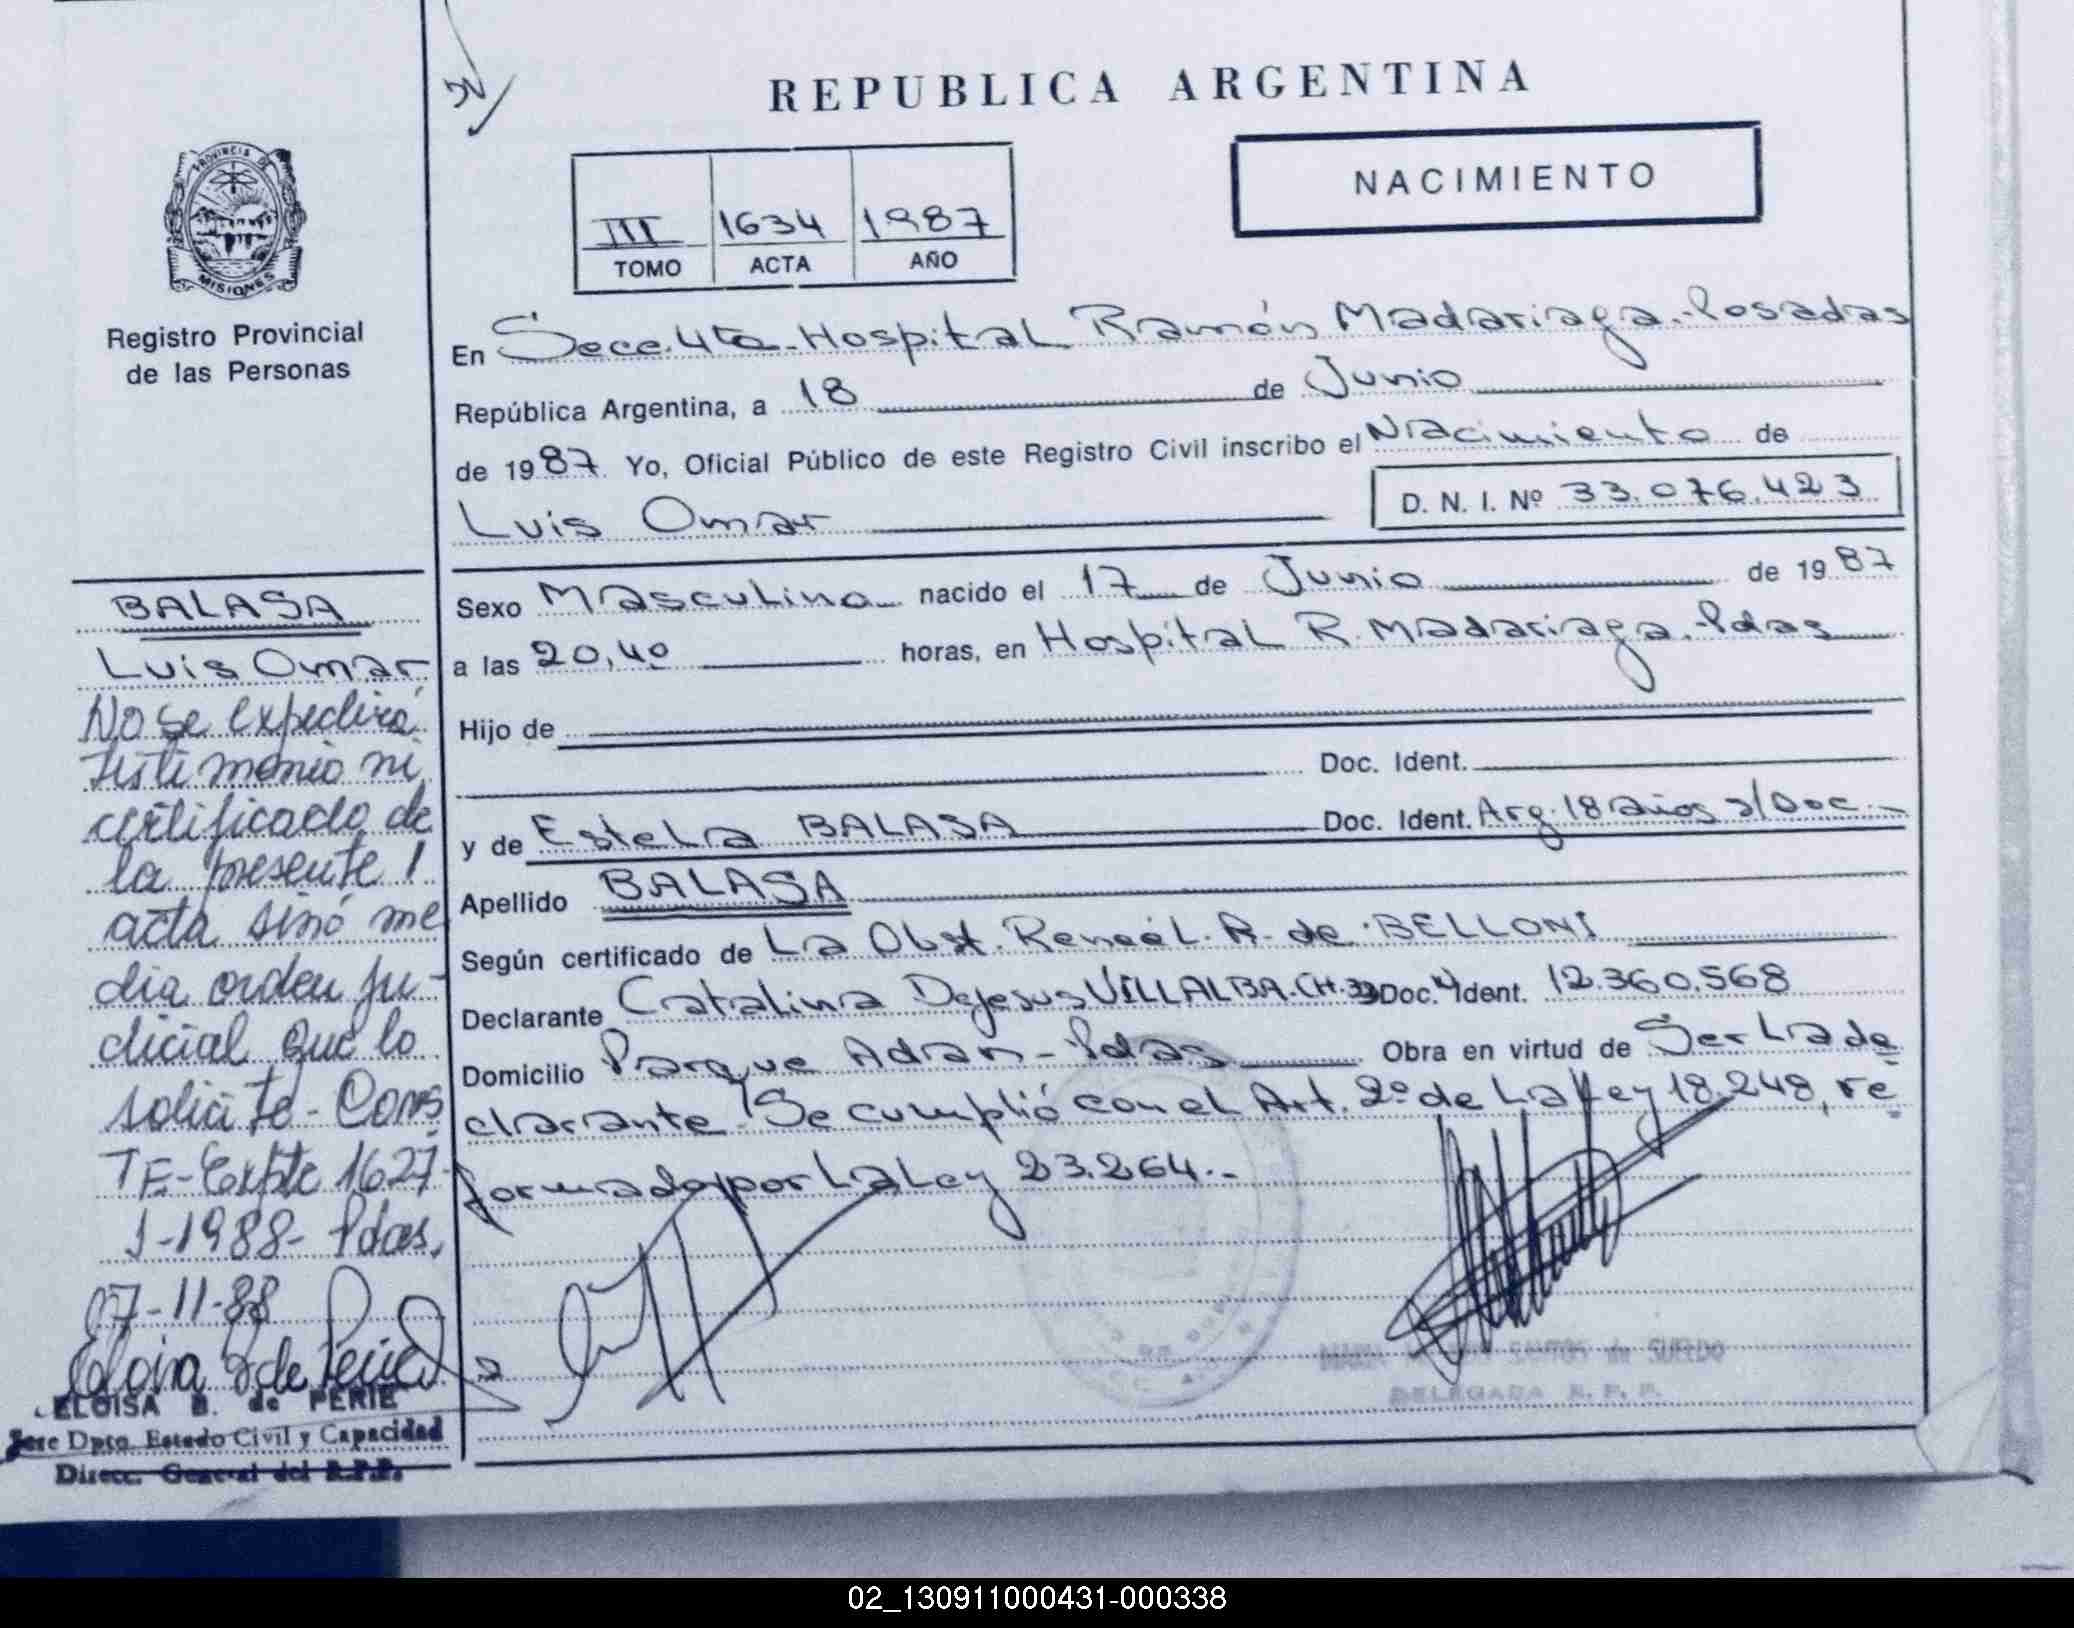 REPUBLICA ARGENTINA
NACIMIENTO
III 1634 1987
TOMO ACTA AÑO
PROVINCIA DE
MISIONES
Registro Provincial
de las Personas
En Secc. 4ta. Hospital Ramón Madariaga. Posadas
República Argentina, a 18 de Junio
de 1987 Yo, Oficial Público de este Registro Civil inscribo el Nacimiento de
Luis Omar
D. N. I. Nº 33.076.423
Sexo Masculino nacido el 17 de Junio de 1987
a las 20,40 horas, en Hospital R. Madariaga. Pdas
Hijo de
Doc. Ident.
y de Estela BALASA Doc. Ident. Arg. 18 años s/Doc.-
Apellido BALASA
Según certificado de La Obst. R. de BELLONI
Declarante Catalina Dejesus VILLALBA. CH. 33 Doc. Ident. 12.360.568
Domicilio Parque Adam - Pdas Obra en virtud de Ser La de
clarante. Se cumplió con el Art. 2º de La Ley 18.248, re
formado por La Ley 23.264.-
BALASA
Luis Omar
No se expedirá
testimonio ni
certificado de
la presente
acta sinó me
dia orden ju-
dicial que lo
solicite - Cons
TE-Expte 1627-
J-1988- Pdas,
07-11-88
ELOISA B. de PERIE
Jefe Dpto. Estado Civil y Capacidad
Direcc. General del R.P.P.
SANTOS de SUELDO
DELEGADA R. P. P.
02_130911000431-000338